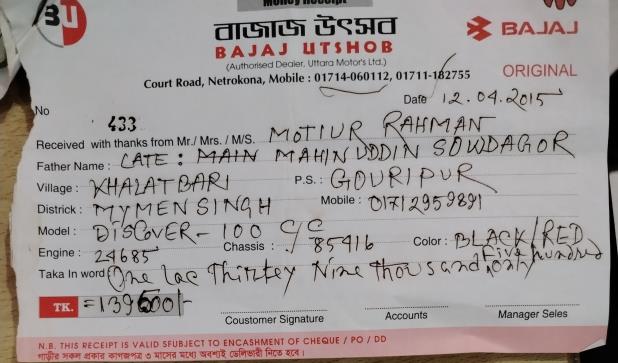 BU
Money Receipt
বাজাজ উৎসব
BAJAJ UTSHOB
(Authorised Dealer, Uttara Motor's Ltd.)
BAJAJ
Court Road, Netrokona, Mobile : 01714-060112, 01711-182755
ORIGINAL
Date 12.04.2015
No 433
Received with thanks from Mr./ Mrs. / M/S. MOTIUR RAHMAN
Father Name : LATE : MAIN MAHINUDDIN SOWDAGOR
Village : KHALATBARI P.S. : GOURIPUR
Districk : MYMENSINGH Mobile : 01712959891
Model : DISCOVER - 100 C/C
Engine : 24685 Chassis : 85416 Color : BLACK/RED
Taka In word One lac Thirtey Nine thousand five hundred only
TK. =139500/-
Coustomer Signature Accounts Manager Seles
N.B. THIS RECEIPT IS VALID SFUBJECT TO ENCASHMENT OF CHEQUE / PO / DD
গাড়ীর সকল প্রকার কাগজপত্র ৩ মাসের মধ্যে অবশ্যই ডেলিভারী নিতে হবে।